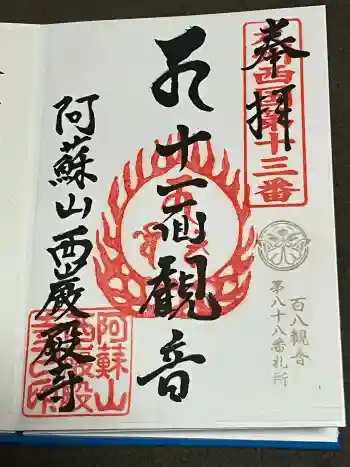 奉拝
九州西国第十三番
百八観音
第八十八番札所
十一面観音
阿蘇山西巌殿寺
阿蘇山
西巌殿
寺之印